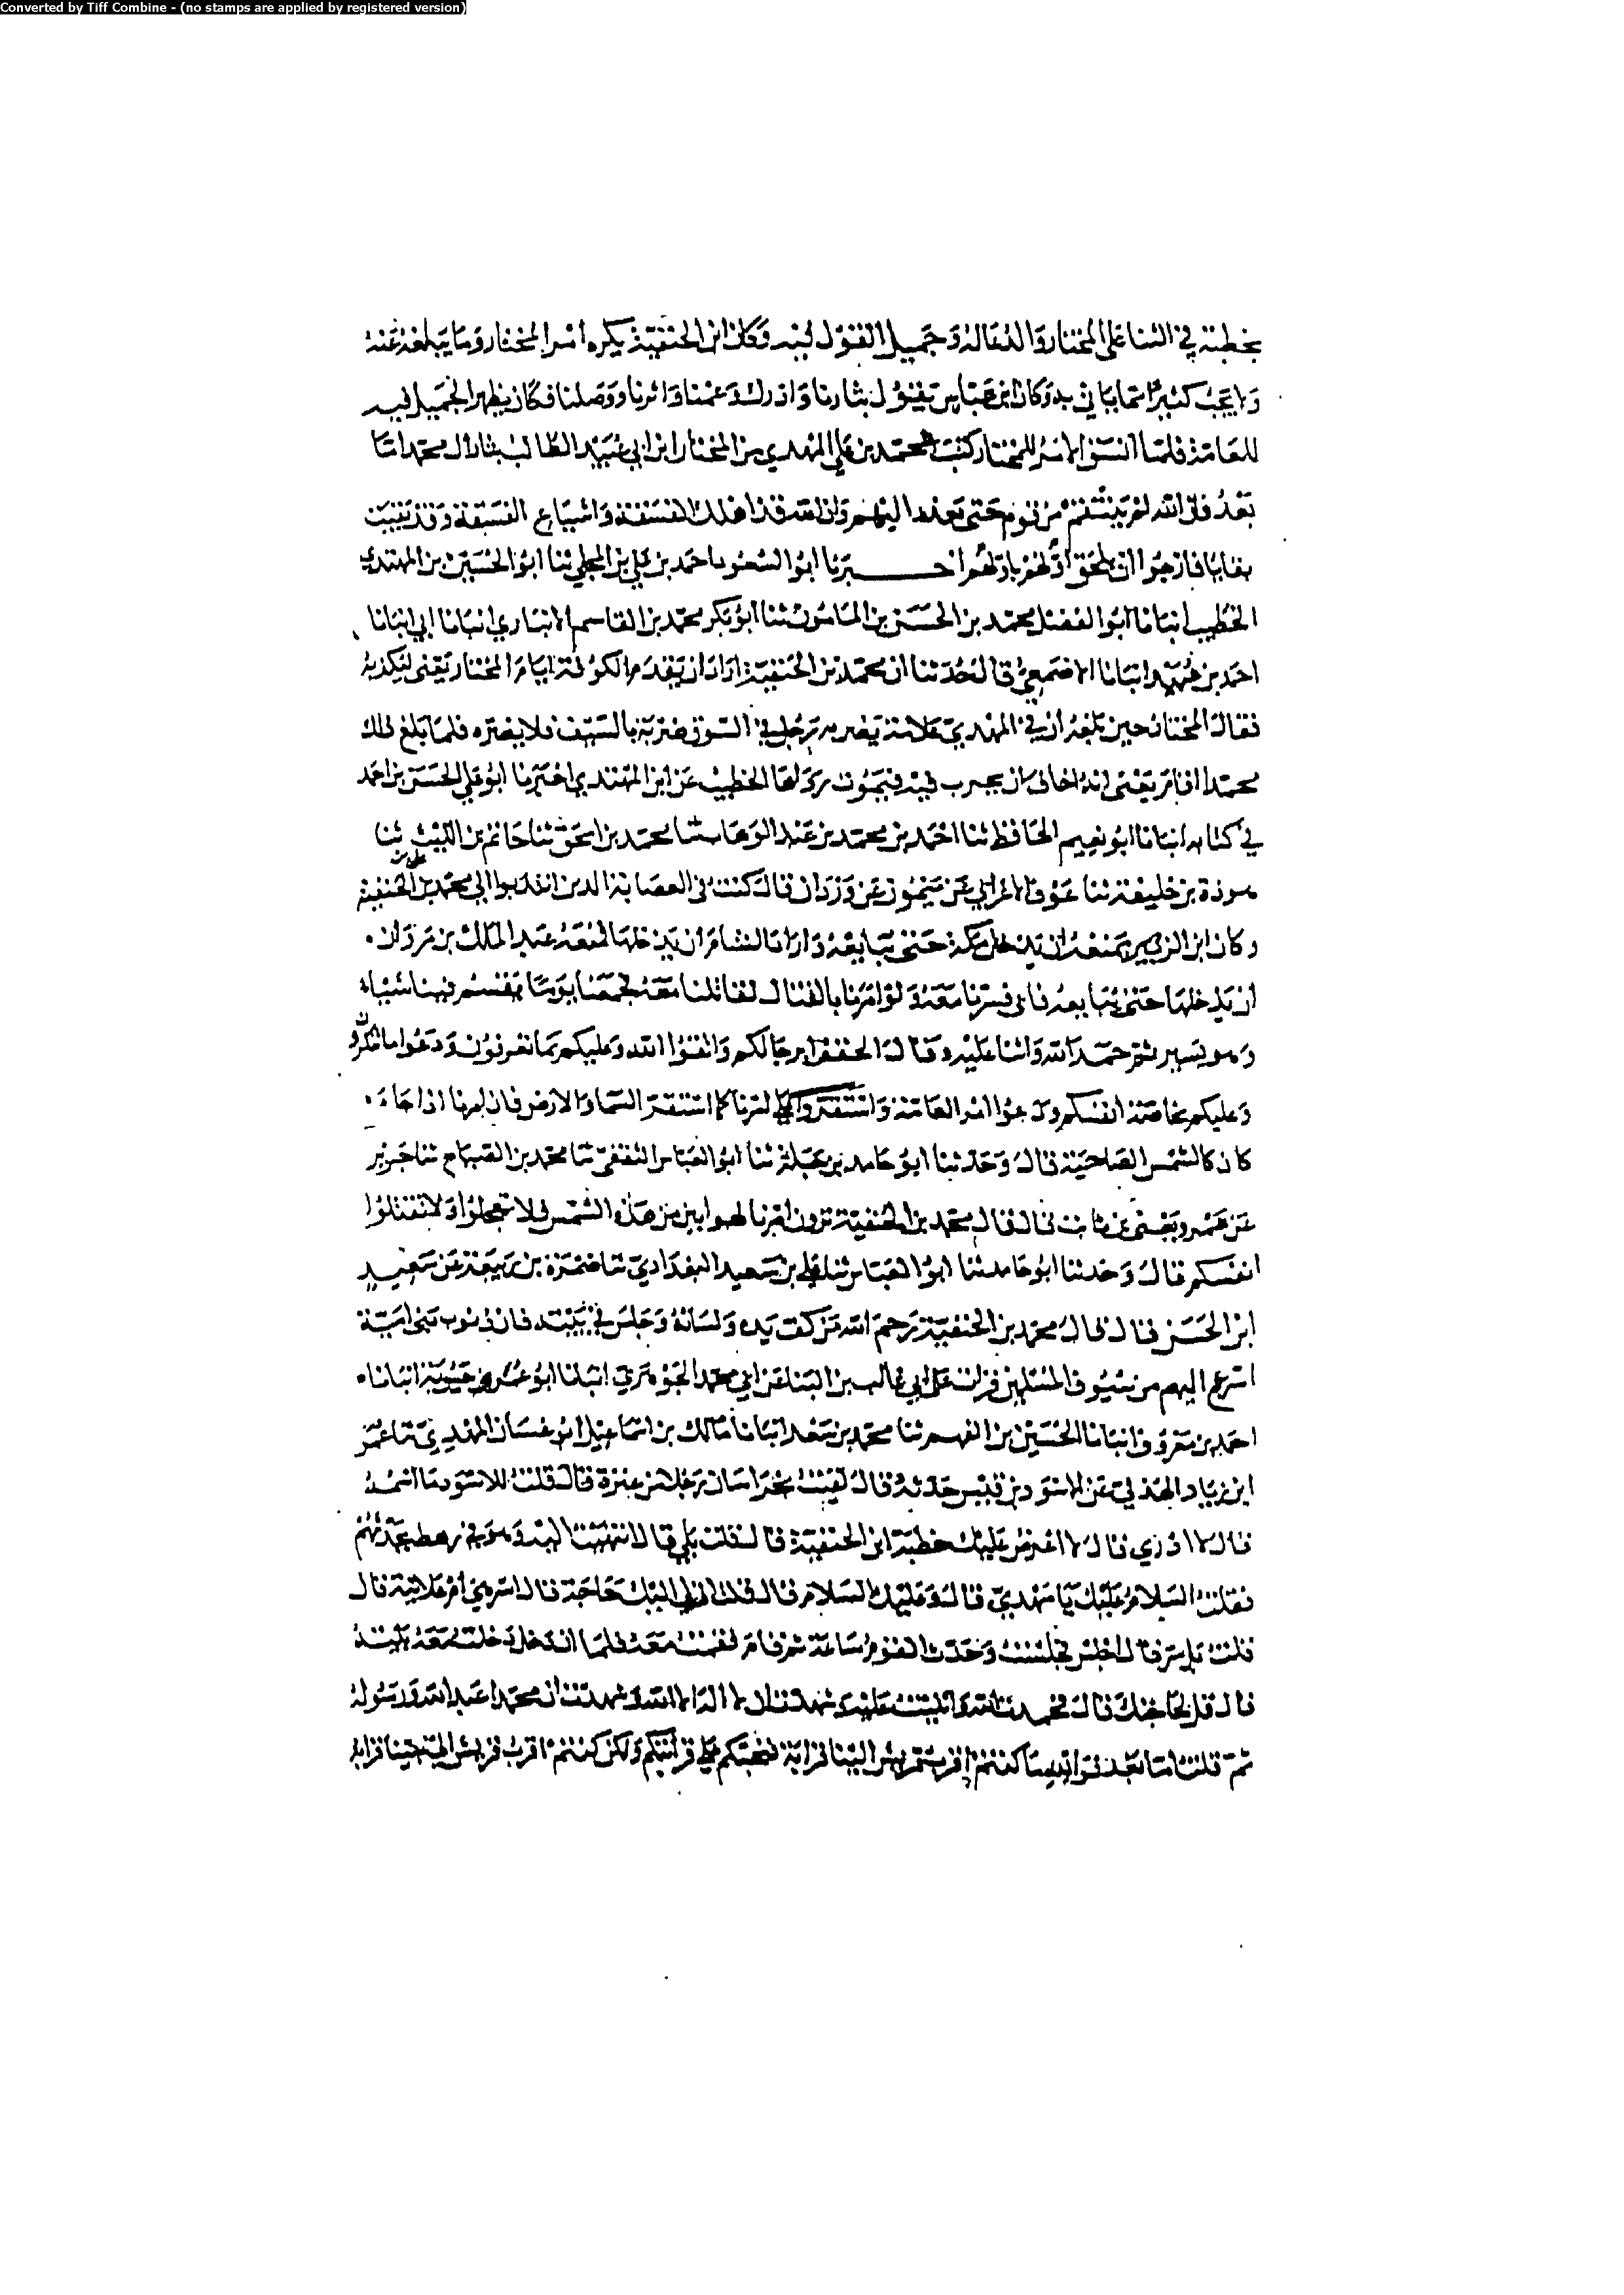 Converted by Tiff Combine - (no stamps are applied by registered version)
بخطبته في الثنا على المختار والدعا له وجميل القول فيه وكان ابن الحنفية يكره امر المختار وما يبلغه عنه
ولا يحب كثيرًا مما ياتي به وكان ابن عباس يقول بثارنا وادرك وغمنا واثرنا ووصلنا فكان يظهر الجميل فيه
للعامة فلما اتسق الامر للمختار كتب لمحمد بن علي المهدي من المختار ابن ابي عبيد الطالب بثار ال محمد اما
بعد فان الله لم ينتقم من قوم حتى يعذر اليهم وان الله قد اهلك الفسقة واشياع الفسقة وقد بقيت
بقايا فارجوا ان يلحق اولهم باولهم اخبرنا ابو السعود احمد بن علي بن المجلي ثنا ابو الحسين بن المهتدي
الخطيب انبانا ابو الفضل محمد بن الحسن بن المامون ثنا ابو بكر محمد بن القاسم الانباري انبانا ابي انبانا
احمد بن عبيد انبانا الاصمعي قال حدثنا ان محمد بن الحنفية اراد ان يقدم الكوفة ايام المختار يعني ليكذبه
فقال المختار حين بلغه ان في المهدي علامة يضربه رجل في السوق ضربة بالسيف فلا يضره فلما بلغ ذلك
محمدا اقام يعني انه خاف ان يجرب فيه فيموت الخطيب عن ابن المهتدي اخبرنا ابو علي الحسن بن احمد
في كتابه انبانا ابو نعيم الحافظ ثنا احمد بن محمد بن عبد الوهاب ثنا محمد بن اسحق ثنا حاتم بن الليث ثنا
هوذة بن خليفة ثنا عوف الاعرابي عن ميمون عن وردان قال كنت في العصابة الذين انتدبوا الى محمد بن علي بن الحنفية
وكان ابن الزبير يمنعه ان يدخل مكة حتى يبايعه واراد الشام ان يدخلها فمنعه عبد الملك بن مروان
ان يدخلها حتى يبايعه فابى فسرنا معه ولو امرنا بالقتال لقاتلنا معه فجمعنا يوما فقسم فينا شيا
وهو يسير ثم حمد الله واثنا عليه وقال الحقوا برحالكم واتقوا الله وعليكم بما تعرفون ودعوا ما تنكرون
وعليكم بخاصة انفسكم ودعوا امر العامة واستقروا لامرنا كما استقر السما والارض فان امرنا اذا جاء
كان كالشمس الضاحية قال وحدثنا ابو حامد بن جبلة ثنا ابو العباس الثقفي ثنا محمد بن الصباح ثنا جرير
عن عمرو يعني بن ثابت قال قال محمد بن الحنفية ترون امرنا لهو ابين من هذه الشمس فلا تعجلوا ولا تقتلوا
انفسكم قال وحدثنا ابو حامد ثنا ابو العباس ثنا علي بن سعيد البغدادي ثنا ضمرة بن ربيعة عن سعيد
ابن الحسن قال قال محمد بن الحنفية رحم الله من كف يده ولسانه وجلس في بيته فان ذنوب بني امية
اسرع اليهم من سيوف المسلمين قرات على ابي غالب بن البنا عن ابي محمد الجوهري انبانا ابو عمر بن حيوية انبانا
احمد بن معروف انبانا الحسين بن الفهم ثنا محمد بن سعد انبانا مالك بن اسماعيل ابو غسان النهدي ثنا عمر
ابن زياد الهذلي عن الاسود بن قيس حدثه قال لقيت بخراسان رجلا من عنزة قال قلت للاسود ما اسمه
قال لا ادري قال الا اعرض عليك خطبة ابن الحنفية قال قلت بلى قال انتهيت اليه وهو في رهط يحدثهم
فقلت السلام عليك يا مهدي قال وعليك السلام قال قلت ان لي اليك حاجة قال اسر هي ام علانية قال
قلت بل سر قال اجلس فجلست وحدث القوم ساعة ثم قام فقمت معه فلما ان دخل دخلت معه بيته
قال قل لحاجتك قال فحمدت الله واثنيت عليه وشهدت ان لا اله الا الله وشهدت ان محمدا عبد الله ورسوله
ثم قلت اما بعد فوالله ما كنتم اقرب قريش الينا قرابة فنحبكم على قرابتكم ولكن كنتم اقرب قريش الى نبينا قرابة